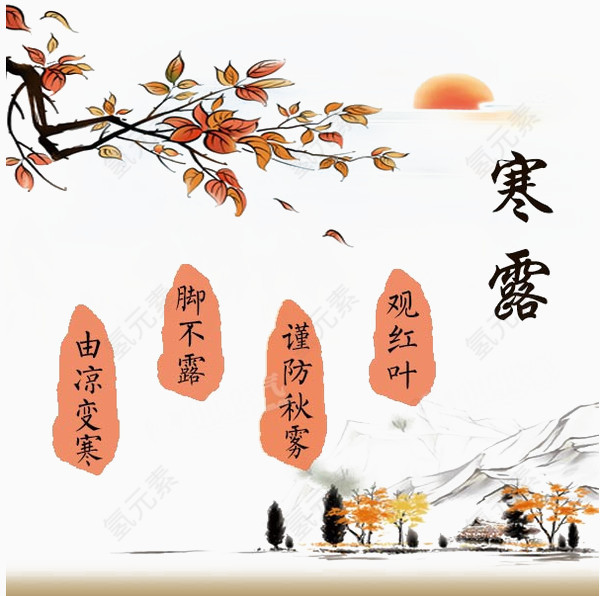 寒露
观红叶
谨防秋雾
脚不露
由凉变寒
氢元素